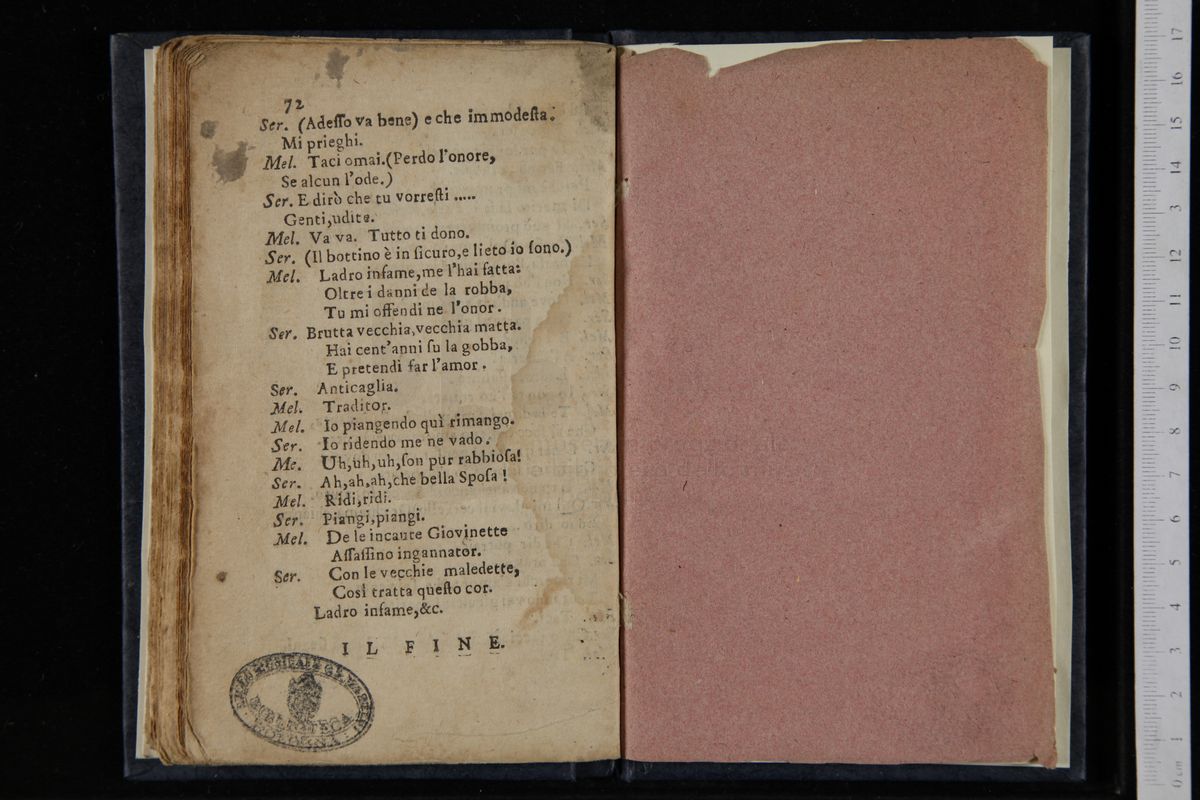 72
Ser. (Adeſſo va bene) e che immodeſta.
Mi prieghi.
Mel. Taci omai. (Perdo l'onore,
Se alcun l'ode.)
Ser. E dirò che tu vorreſti .....
Genti, udite.
Mel. Va va. Tutto ti dono.
Ser. (Il bottino è in ſicuro, e lieto io ſono.)
Mel. Ladro infame, me l'hai fatta:
Oltre i danni de la robba,
Tu mi offendi ne l'onor.
Ser. Brutta vecchia, vecchia matta.
Hai cent'anni ſu la gobba,
E pretendi far l'amor.
Ser. Anticaglia.
Mel. Traditor.
Mel. Io piangendo quì rimango.
Ser. Io ridendo me ne vado.
Me. Uh, uh, uh, ſon pur rabbioſa!
Ser. Ah, ah, ah, che bella Spoſa!
Mel. Ridi, ridi.
Ser. Piangi, piangi.
Mel. De le incaute Giovinette
Aſſaſſino ingannator.
Ser. Con le vecchie maledette,
Così tratta queſto cor.
Ladro infame, &c.
IL FINE.
BIBLIOTECA
BOLOGNA
17
16
15
14
13
12
11
10
9
8
7
6
5
4
3
2
1
0 cm